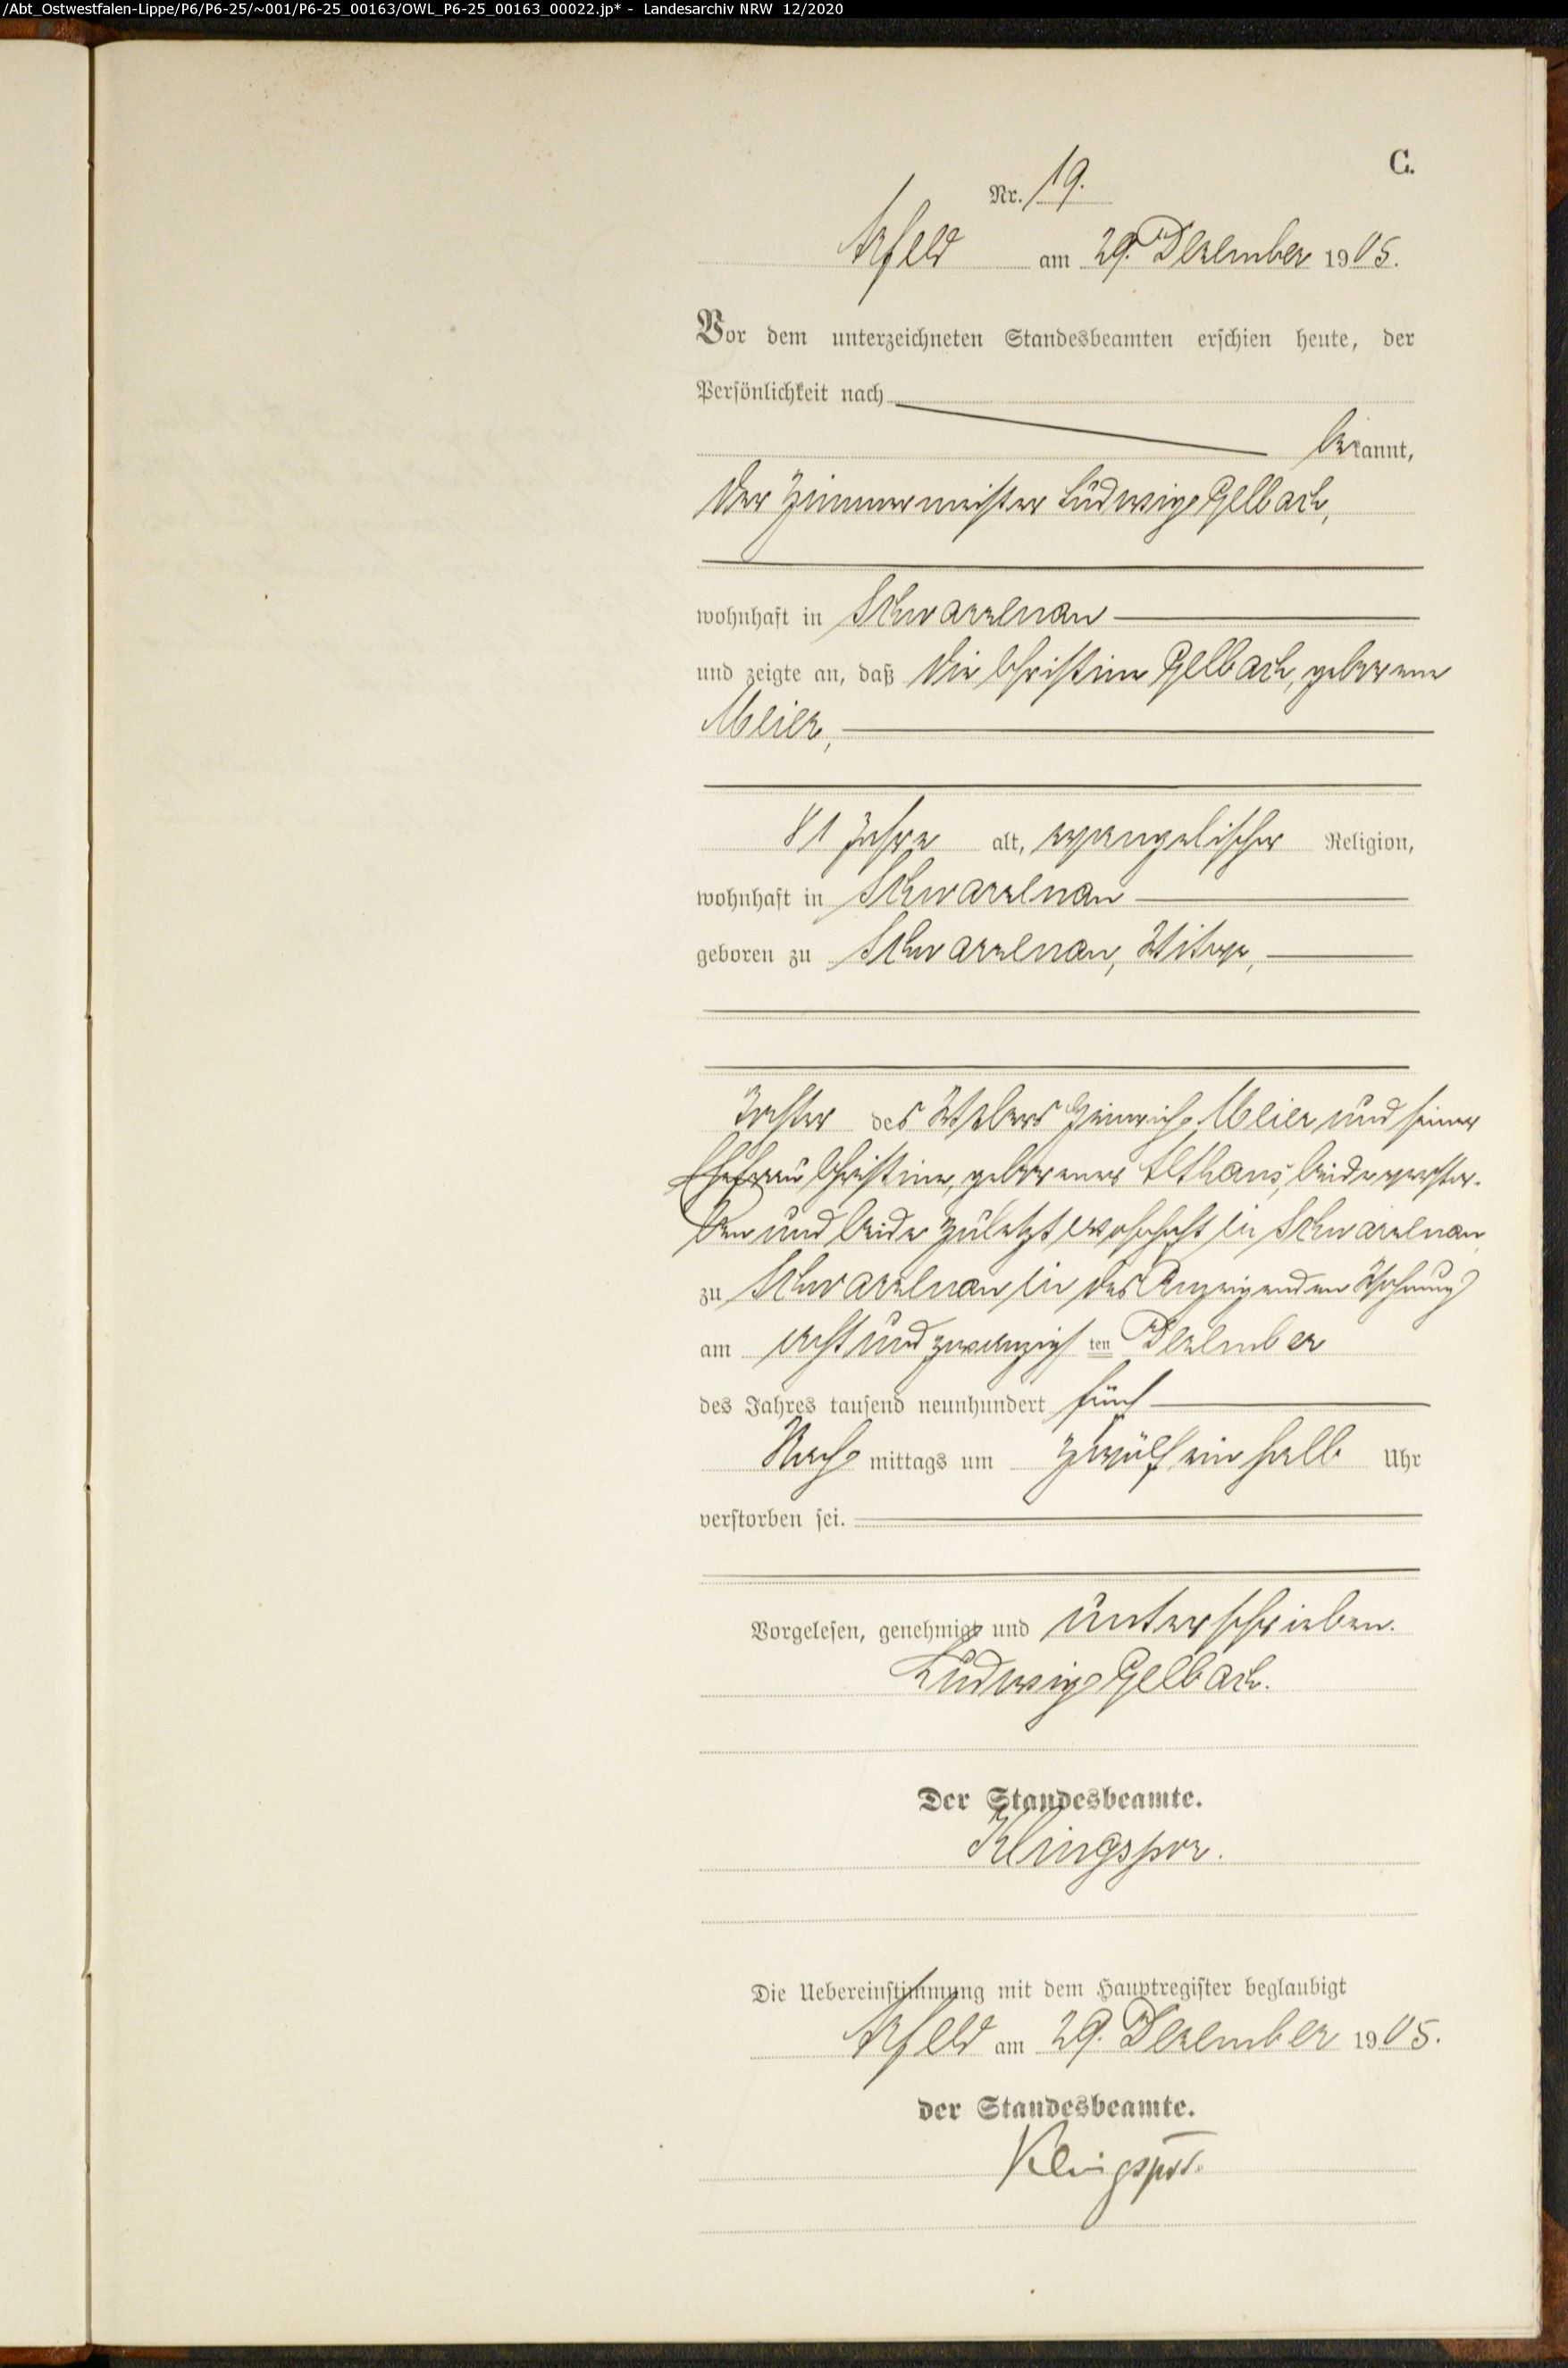 /Abt_Ostwestfalen-Lippe/P6/P6-25/~001/P6-25_00163/OWL_P6-25_00163_00022.jp* - Landesarchiv NRW 12/2020
C.
Nr. 19.
Arfeld am 29. Dezember 1905.
Vor dem unterzeichneten Standesbeamten erschien heute, der
Persönlichkeit nach
bekannt,
der Zimmermeister Ludwig Gelbach,
wohnhaft in Schwarzenau
und zeigte an, daß die Christine Gelbach, geborene
Meier,
81 Jahre alt, evangelischer Religion,
wohnhaft in Schwarzenau
geboren zu Schwarzenau, Witwe,
Tochter des Webers Heinrich Meier und seiner
Ehefrau Christine, geborener Althaus, beide verstor-
ben und beide zuletzt wohnhaft in Schwarzenau
zu Schwarzenau in des Anzeigenden Wohnung
am acht und zwanzigsten Dezember
des Jahres tausend neunhundert fünf
Nachmittags um zwölf ein halb Uhr
verstorben sei.
Vorgelesen, genehmigt und unterschrieben.
Ludwig Gelbach.
Der Standesbeamte.
Klingspor.
Die Uebereinstimmung mit dem Hauptregister beglaubigt
Arfeld am 29. Dezember 1905.
der Standesbeamte.
Klingspor.